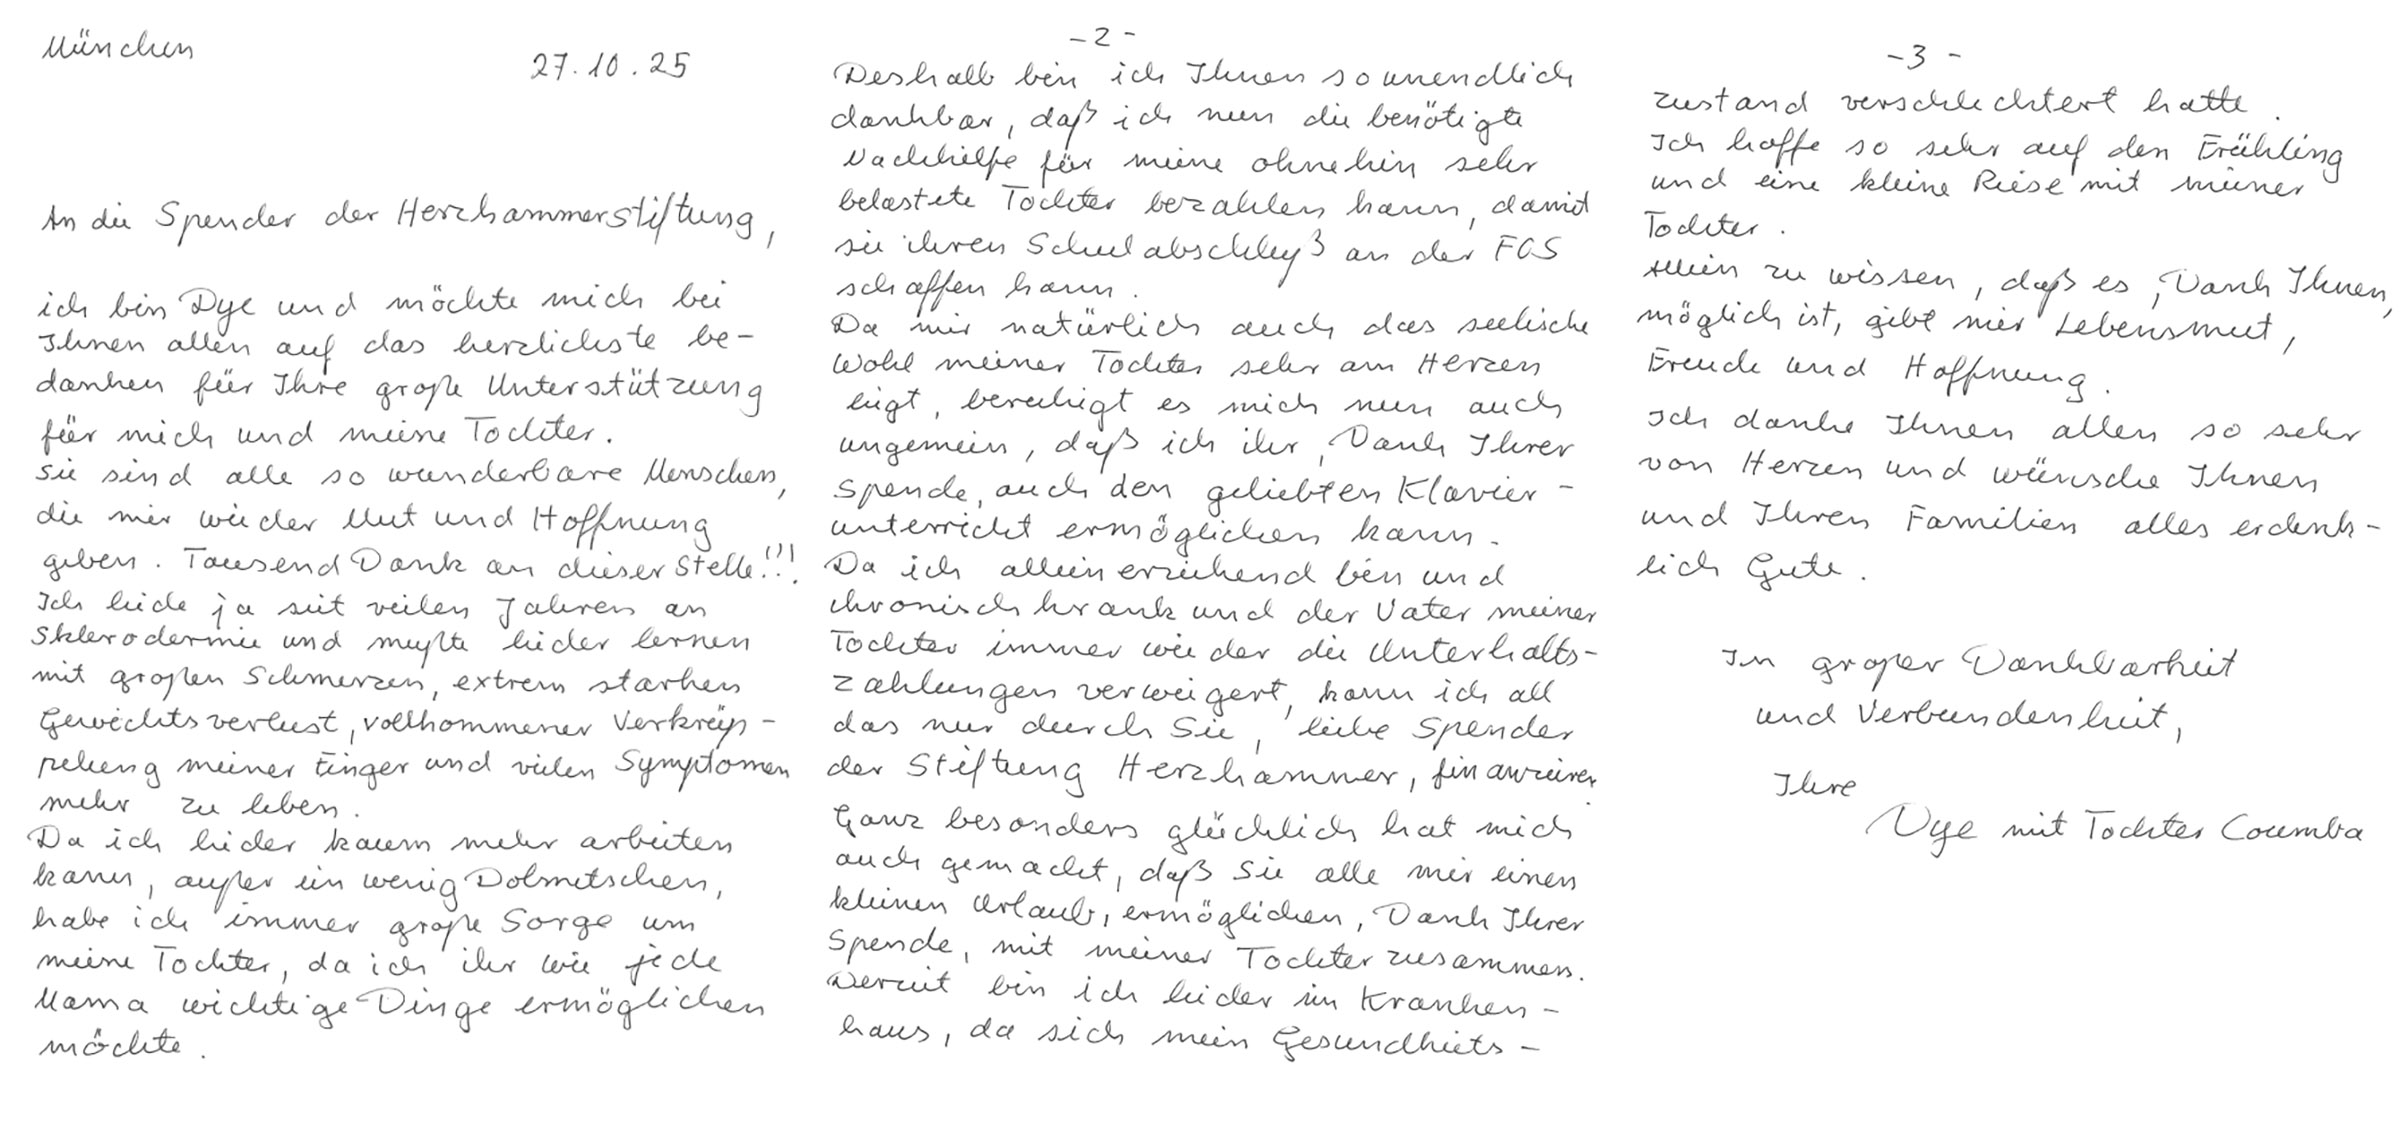 München
27.10.25
An die Spender der Herzkammerstiftung,
ich bin Dye und möchte mich bei
Ihnen allen auf das herzlichste be-
danken für Ihre große Unterstützung
für mich und meine Tochter.
Sie sind alle so wunderbare Menschen,
die mir wieder Mut und Hoffnung
geben. Tausend Dank an dieser Stelle!!!
Ich leide ja seit vielen Jahren an
Sklerodermie und mußte leider lernen
mit großen Schmerzen, extrem starken
Gewichtsverlust, vollkommener Verkrüp-
pelung meiner Finger und vielen Symptomen
mehr zu leben.
Da ich leider kaum mehr arbeiten
kann, außer ein wenig Dolmetschen,
habe ich immer große Sorge um
meine Tochter, da ich ihr wie jede
Mama wichtige Dinge ermöglichen
möchte.
-2-
Deshalb bin ich Ihnen so unendlich
dankbar, daß ich nun die benötigte
Nachhilfe für meine ohnehin sehr
belastete Tochter bezahlen kann, damit
sie ihren Schulabschluß an der FOS
schaffen kann.
Da mir natürlich auch das seelische
Wohl meiner Tochter sehr am Herzen
liegt, beruhigt es mich nun auch
ungemein, daß ich ihr, Dank Ihrer
Spende, auch den geliebten Klavier-
unterricht ermöglichen kann.
Da ich alleinerziehend bin und
chronisch krank und der Vater meiner
Tochter immer wieder die Unterhalts-
zahlungen verweigert, kann ich all
das nur durch Sie, liebe Spender
der Stiftung Herzkammer, finanzieren.
Ganz besonders glücklich hat mich
auch gemacht, daß Sie alle mir einen
kleinen Urlaub, ermöglichen, Dank Ihrer
Spende, mit meiner Tochter zusammen.
Derzeit bin ich leider im Kranken-
haus, da sich mein Gesundheits-
-3-
zustand verschlechtert hatte.
Ich hoffe so sehr auf den Frühling
und eine kleine Reise mit meiner
Tochter.
Allein zu wissen, daß es, Dank Ihnen,
möglich ist, gibt mir Lebensmut,
Freude und Hoffnung.
Ich danke Ihnen allen so sehr
von Herzen und wünsche Ihnen
und Ihren Familien alles erdenk-
lich Gute.
In großer Dankbarkeit
und Verbundenheit,
Ihre
Dye mit Tochter Coumba